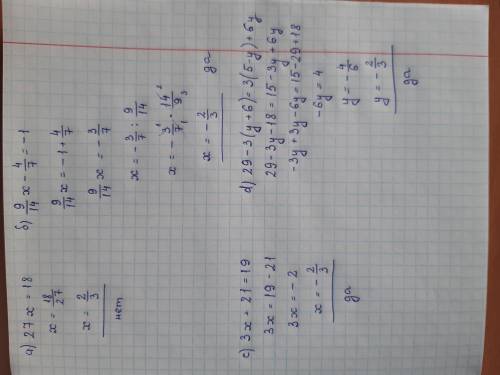 а) 27x = 18
x = 18/27
x = 2/3
нет
б) 9/14 x - 4/7 = -1
9/14 x = -1 + 4/7
9/14 x = -3/7
x = -3/7 : 9/14
x = -3¹/7₁ · 14²/9₃
x = -2/3 да
c) 3x + 21 = 19
3x = 19 - 21
3x = -2
x = -2/3
да
d) 29 - 3(y+6) = 3(5-y) + 6y
29 - 3y - 18 = 15 - 3y + 6y
-3y + 3y - 6y = 15 - 29 + 18
-6y = 4
y = -4/6
y = -2/3
да